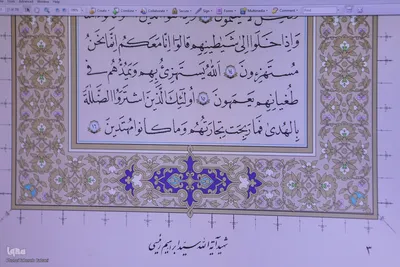 وَإِذَا خَلَوْا إِلَىٰ شَيَٰطِينِهِمْ قَالُوا إِنَّا مَعَكُمْ إِنَّمَا نَحْنُ
مُسْتَهْزِءُونَ ١٤ اللَّهُ يَسْتَهْزِئُ بِهِمْ وَيَمُدُّهُمْ فِي
طُغْيَٰنِهِمْ يَعْمَهُونَ ١٥ أُولَٰئِكَ الَّذِينَ اشْتَرَوُا الضَّلَٰلَةَ
بِالْهُدَىٰ فَمَا رَبِحَتْ تِجَٰرَتُهُمْ وَمَا كَانُوا مُهْتَدِينَ ١٦
شهید آیة الله سید ابراهیم رئیسی
٣